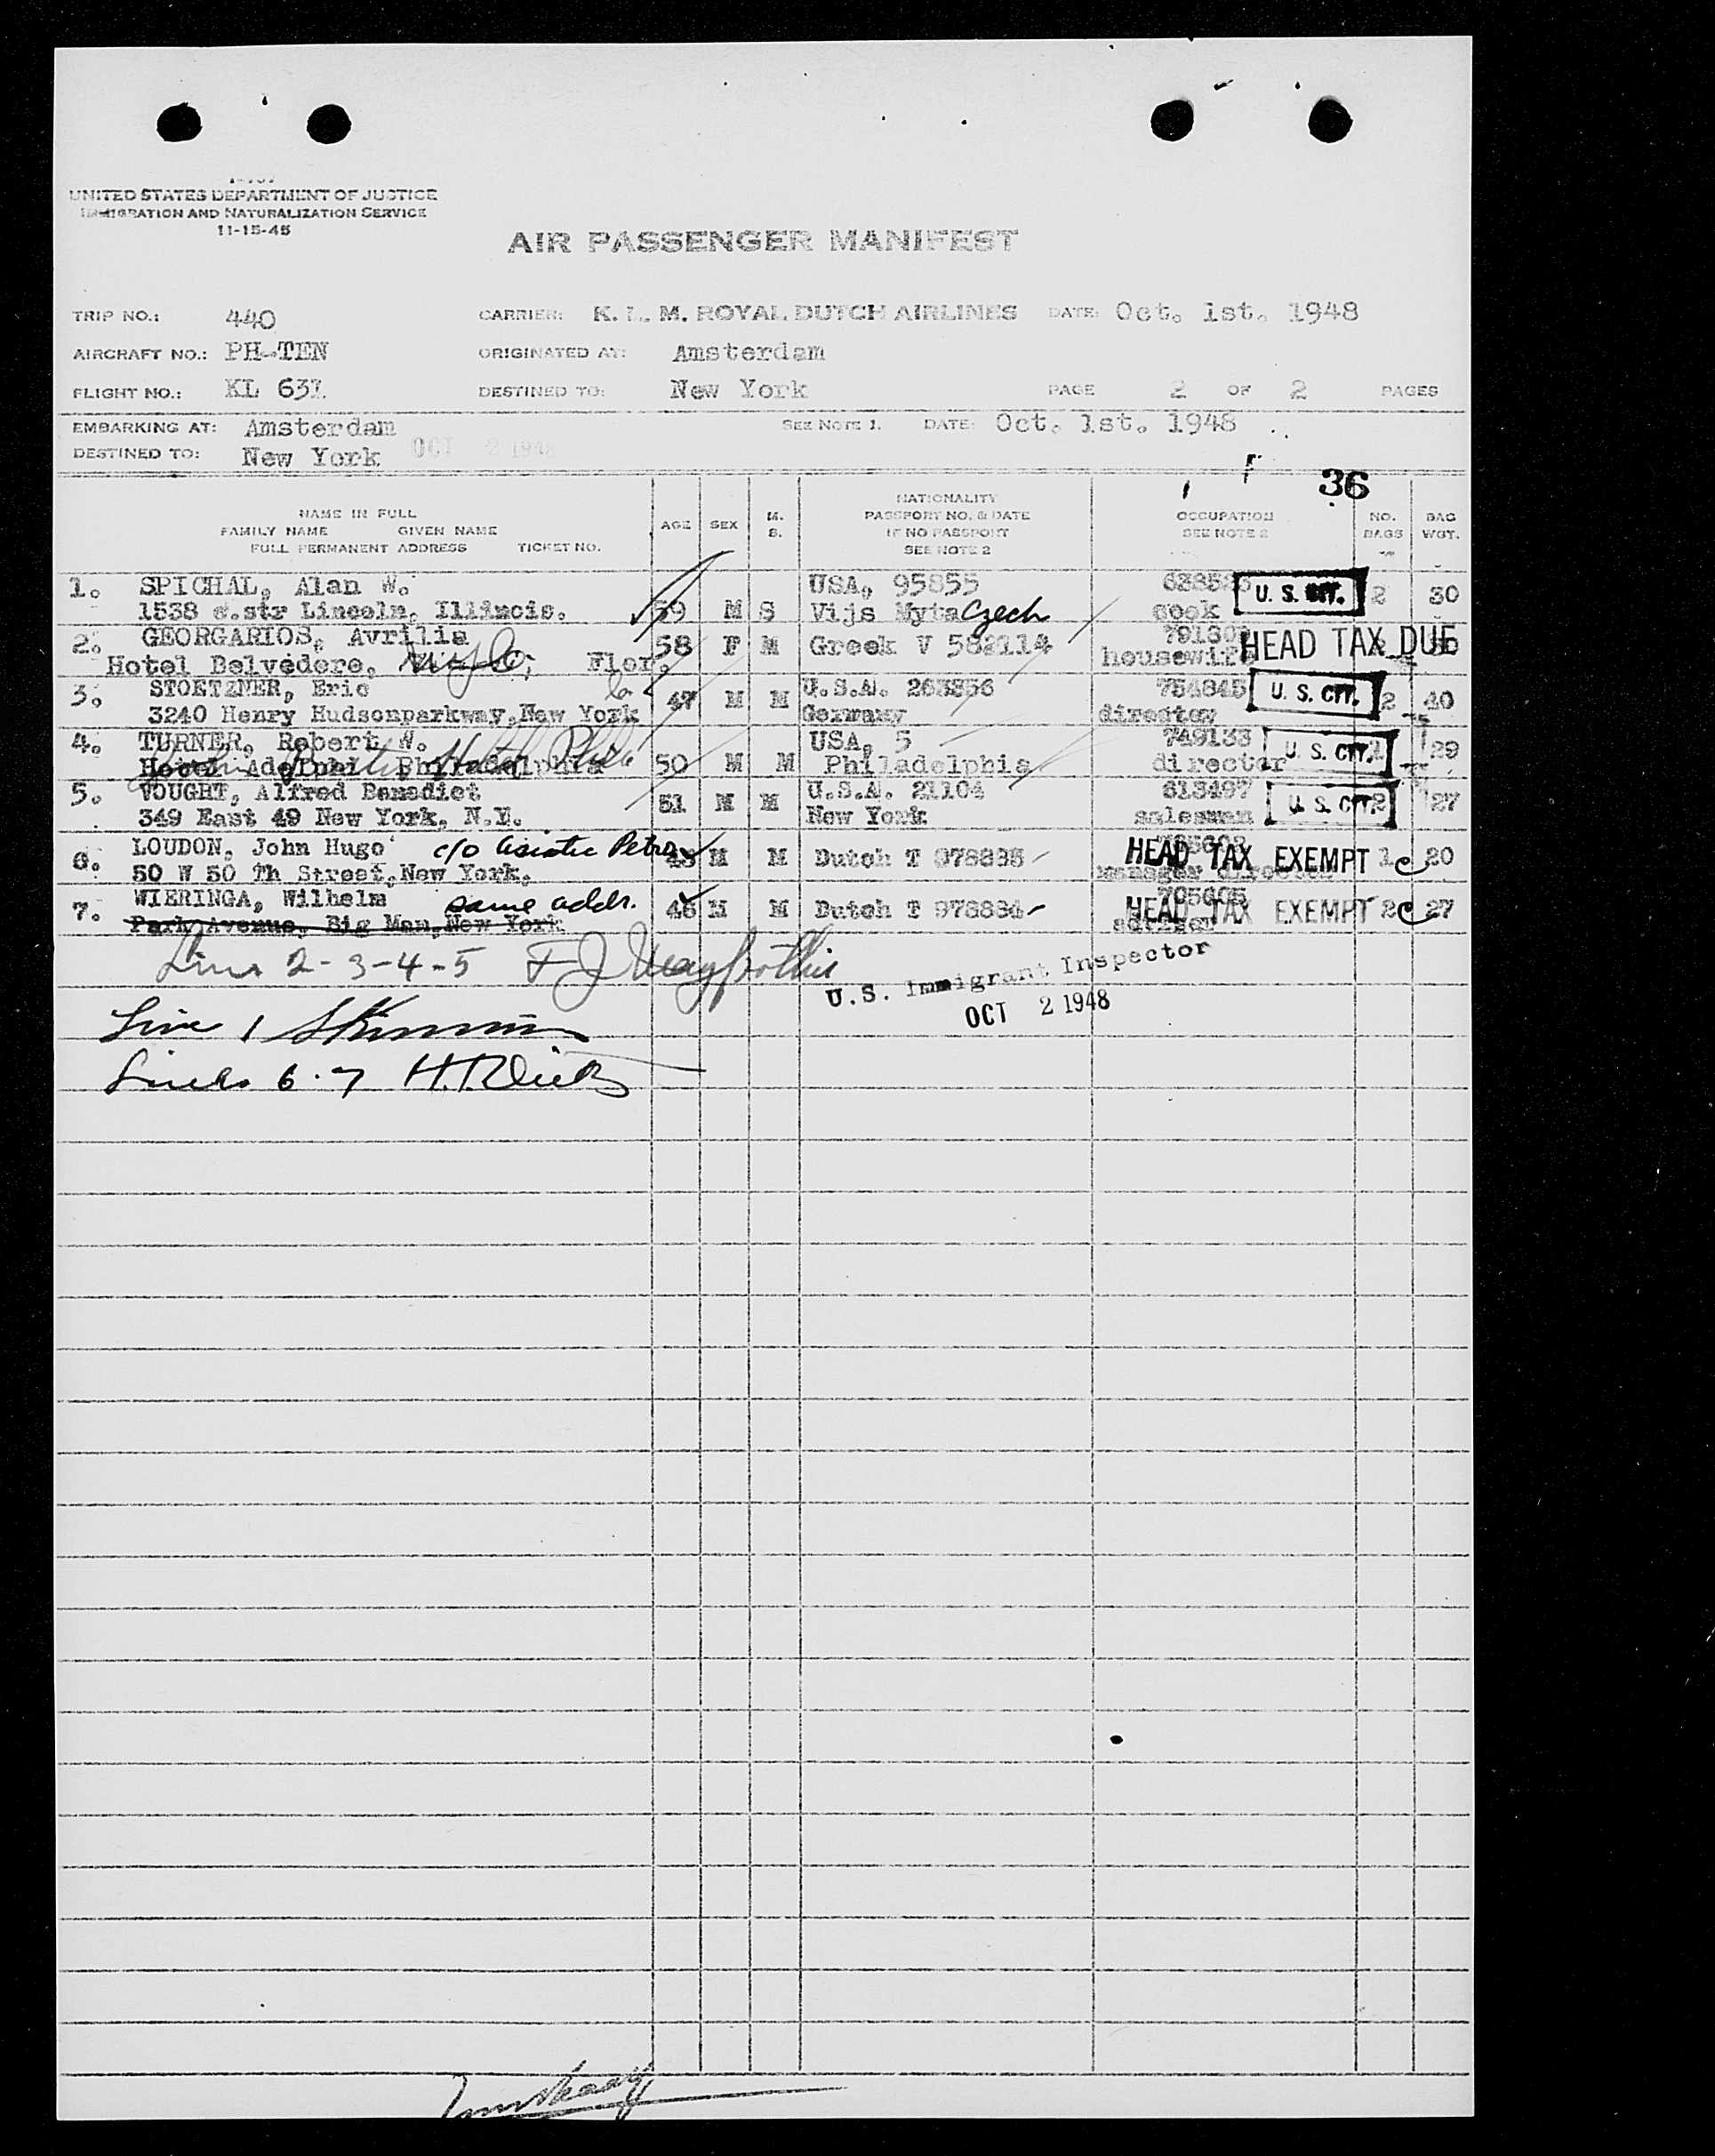 UNITED STATES DEPARTMENT OF JUSTICE
IMMIGRATION AND NATURALIZATION SERVICE
11-15-45
AIR PASSENGER MANIFEST
TRIP NO.: 440 CARRIER: K. L. M. ROYAL DUTCH AIRLINES DATE: Oct. 1st. 1948
AIRCRAFT NO.: PH-TEN ORIGINATED AT: Amsterdam
FLIGHT NO.: KL 631 DESTINED TO: New York PAGE 2 OF 2 PAGES
EMBARKING AT: Amsterdam SEE NOTE 1. DATE: Oct. 1st. 1948
DESTINED TO: New York OCT 2 1948
36
NAME IN FULL
FAMILY NAME GIVEN NAME
FULL PERMANENT ADDRESS TICKET NO.
AGE SEX M. S.
NATIONALITY
PASSPORT NO. & DATE
IF NO PASSPORT
SEE NOTE 2
OCCUPATION
SEE NOTE 2
NO. BAGS
BAG WGT.
1. SPICHAL, Alan W. USA, 95855 U. S. CIT. 2 30
1538 s.str Lincoln, Illinois. 39 M S Vijs Myta Czech cook
2. GEORGARIOS, Avrilia 58 F M Greek V 582114 HEAD TAX DUE
Hotel Belvedere, Flor. housewife
3. STOETZNER, Eric 47 M M U.S.A. 263856 754845 U. S. CIT. 2 40
3240 Henry Hudsonparkway, New York Germany director
4. TURNER, Robert W. USA, 5 749133 U. S. CIT. 29
Hotel Adelphi Philadelphia 50 M M Philadelphia director
5. VOUGHT, Alfred Benedict 51 M M U.S.A. 21104 613497 U. S. CIT. 2 27
349 East 49 New York, N.Y. New York salesman
6. LOUDON, John Hugo c/o Asiatic Petro 43 M M Dutch T 978885 HEAD TAX EXEMPT 1 c 20
50 W 50 Th Street, New York. manager director
7. WIERINGA, Wilhelm same addr. 46 M M Dutch T 978884 HEAD TAX EXEMPT 2 c 27
Park Avenue, Big Man, New York
Lines 2-3-4-5
U.S. Immigrant Inspector
OCT 2 1948
Line 1
Lines 6.7